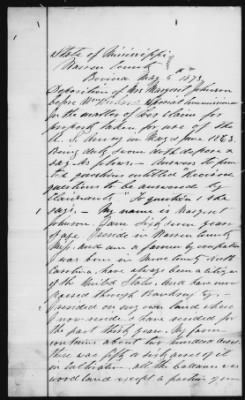 State of Mississippi
Warren County
Bovina May 6th 1873
Deposition of Mrs Margaret Johnson
before Wm special commissioner
in the matter of her claim for
property taken for use of the
U. S. Army in May & June 1863.
Being duly sworn doth depose &
say as follows — Answers to prin
ted questions entitled "Decisive
questions to be answered by
Claimants" To question 1 she
says, — My name is Margaret
Johnson. I am years
of age. I reside in Warren County
Miss, and am a farmer by occupation
I was born in County North
Carolina, have always been a citizen
of the United States. And have never
passed through Bankruptcy.
I resided on my own land where
I now reside & have resided for
the past thirty years. My farm
contains about two hundred acres.
There was fifty or sixty acres of it
in cultivation. all the balance was
wood land except a portion of